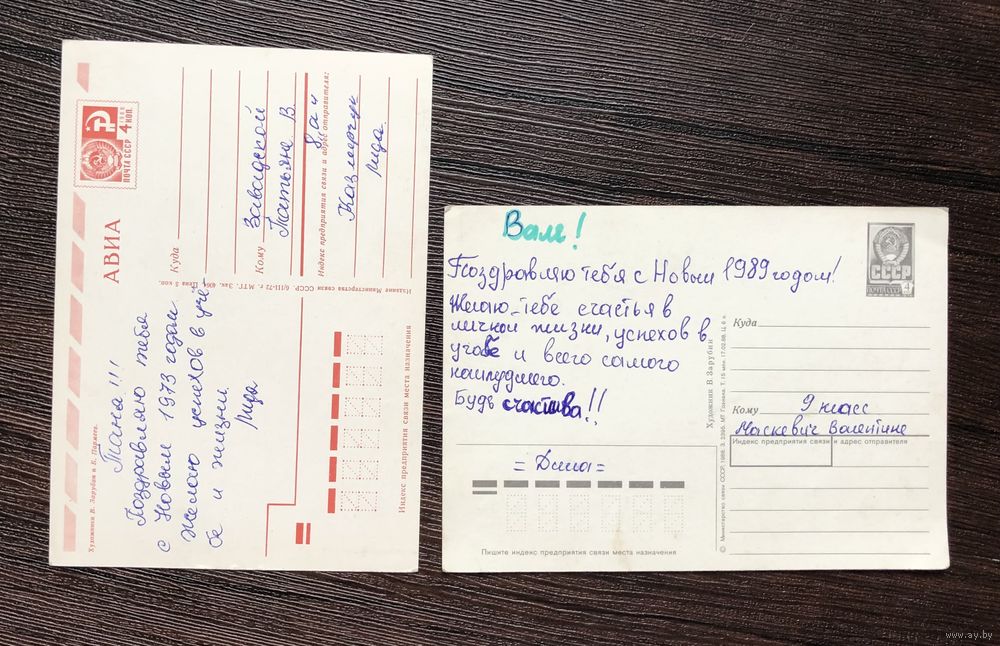 Художники В. Зарубин и Б. Пармеев.
Таня!!!
Поздравляю тебя
с Новым 1973 годом.
Желаю успехов в учё
бе и жизни.
Лида
АВИА
ПОЧТА СССР
4 КОП.
Куда
Кому Завадской
Татьяне В.
8 а ч
Индекс предприятия связи и адрес отправителя:
Казмерчук
Лида.
Издание Министерства связи СССР. 6/III-72 г. МТГ. Зак. 4064. Цена 5 коп.
Индекс предприятия связи места назначения
Вале!
Поздравляю тебя с Новым 1989 годом!
Желаю тебе счастья в
личной жизни, успехов в
учобе и всего самого
наилудшего.
Будь счастлива!!
= Дима =
Пишите индекс предприятия связи места назначения
Художник В. Зарубин
© Министерство связи СССР, 1988. З. 3395. МТ Гознака. Т. 15 млн. 17.02.88. Ц. 6 к.
СССР
ПОЧТА
4
Куда
Кому 9 класс
Маскевич Валентине
Индекс предприятия связи и адрес отправителя
www.ay.by